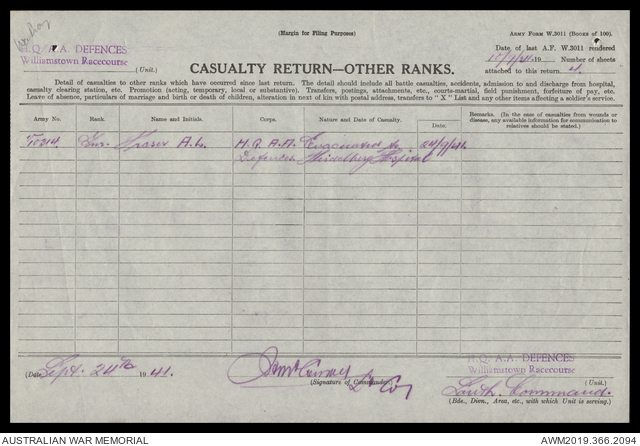 (Margin for Filing Purposes)
Army Form W.3011 (Books of 100).
H.Q. A.A. DEFENCES
Williamstown Racecourse
(Unit.)
Date of last A.F. W.3011 rendered
19 Number of sheets
attached to this return
CASUALTY RETURN—OTHER RANKS.
Detail of casualties to other ranks which have occurred since last return. The detail should include all battle casualties, accidents, admission to and discharge from hospital,
casualty clearing station, etc. Promotion (acting, temporary, local or substantive). Transfers, postings, attachments, etc., courts-martial, field punishment, forfeiture of pay, etc.
Leave of absence, particulars of marriage and birth or death of children, alteration in next of kin with postal address, transfers to "X" List and any other items affecting a soldier's service.
Army No. Rank. Name and Initials. Corps. Nature and Date of Casualty. Date. Remarks. (In the case of casualties from wounds or
disease, any available information for communication to
relatives should be stated.)
Gnr. Fraser A.L. H.Q. A.A. Evacuated to 24/9/41
Defences Heidelberg Hospital
(Date) Sept. 24th 1941.
(Signature of Commander)
H.Q. A.A. DEFENCES
Williamstown Racecourse
(Unit.)
South. Command.
(Bde., Divn., Area, etc., with which Unit is serving.)
AUSTRALIAN WAR MEMORIAL
AWM2019.366.2094